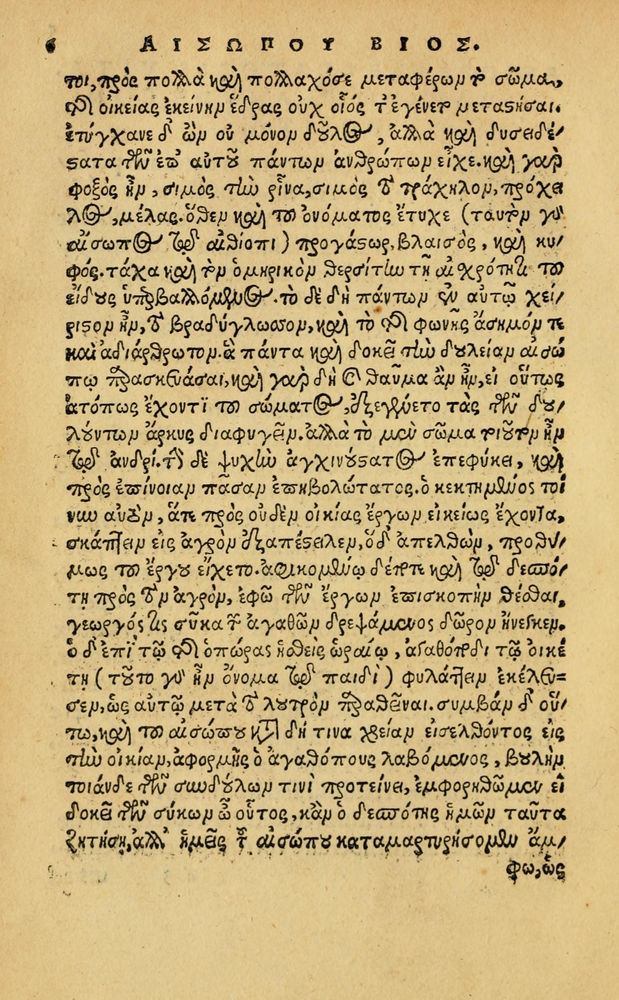 6 ΑΙΣΩΠΟΥ ΒΙΟΣ.
τοι, πρὸς πολλὰ καὶ πολλαχόσε μεταφέρων τὸ σῶμα,
τῆς οἰκείας ἐκείνην ἕδρας οὐχ οἷός τ' ἐγένετο μεταστῆσαι.
ἐτύγχανε δ' ὢν οὐ μόνον δοῦλος, ἀλλὰ καὶ δυσειδέ-
στατα τῶν ἐπ' αὐτοῦ πάντων ἀνθρώπων εἶχε. καὶ γὰρ
φοξὸς ἦν, σιμὸς τὴν ῥῖνα, σιμὸς τὸν τράχηλον, πρόχει-
λος, μέλας. ὅθεν καὶ τοῦ ὀνόματος ἔτυχε (ταυτὸν γὰρ
αἴσωπος τῷ αἰθίοπι) προγάστωρ, βλαισὸς, καὶ κυ-
φός. τάχα καὶ τὸν ὁμηρικὸν θερσίτην τῇ αἰσχρότητι τοῦ
εἴδους ὑπερβαλλόμενος. τὸ δὲ δὴ πάντων ἐν αὐτῷ χεί-
ριστον ἦν, τὸ βραδύγλωσσον, καὶ τὸ τῆς φωνῆς ἄσημόν τε
καὶ ἀδιάρθρωτον. ἃ πάντα καὶ δοκεῖ τὴν δουλείαν αἰσώ-
πῳ παρασκευάσαι, καὶ γὰρ δὴ καὶ θαῦμα ἂν ἦν, εἰ οὕτως
ἀτόπως ἔχοντι τοῦ σώματος, ἐξεγένετο τὰς τῶν δου-
λούντων ἄρκυς διαφυγεῖν. ἀλλὰ τὸ μὲν σῶμα τοιοῦτον ἦν
τῷ ἀνδρί. τὴν δὲ ψυχὴν ἀγχινούστατος ἐπεφύκει, καὶ
πρὸς ἐπίνοιαν πᾶσαν ἐπηβολώτατος. ὁ κεκτημένος τοί-
νυν αὐτὸν, ἅτε πρὸς οὐδὲν οἰκίας ἔργων εἰκείως ἔχοντα,
σκάπτειν εἰς ἀγρὸν ἐξαπέστειλεν, ὁ δ' ἀπελθὼν, προθύ-
μως τοῦ ἔργου εἴχετο. ἀφικομένῳ δέ ποτε καὶ τῷ δεσπό-
τῃ πρὸς τὸν ἀγρὸν, ἐφ' ᾧ τῶν ἔργων ἐπισκοπὴν θέσθαι,
γεωργός τις σῦκα τῶν ἀγαθῶν δρεψάμενος δῶρον ἤνεγκεν.
ὁ δ' ἐπὶ τῷ τῆς ὀπώρας ἡσθεὶς ὡραίῳ, ἀγαθόποδι τῷ οἰκέ-
τῃ (τοῦτο γὰρ ἦν ὄνομα τῷ παιδί) φυλάττειν ἐκέλευ-
σεν, ὡς αὐτῷ μετὰ τὸ λουτρὸν παραθεῖναι. συμβὰν δ' οὕ-
τω, καὶ τοῦ αἰσώπου κατὰ δή τινα χρείαν εἰσελθόντος εἰς
τὴν οἰκίαν, ἀφορμῆς ὁ ἀγαθόπους λαβόμενος, βουλὴν
τοιάνδε τῶν συνδούλων τινὶ προτείνει, ἐμφορηθῶμεν εἰ
δοκεῖ τῶν σύκων ὦ οὗτος, κἂν ὁ δεσπότης ἡμῶν ταῦτα
ζητήσῃ, ἀλλ' ἡμεῖς τοῦ αἰσώπου καταμαρτυρήσομεν ἄμ-
φω, ὡς